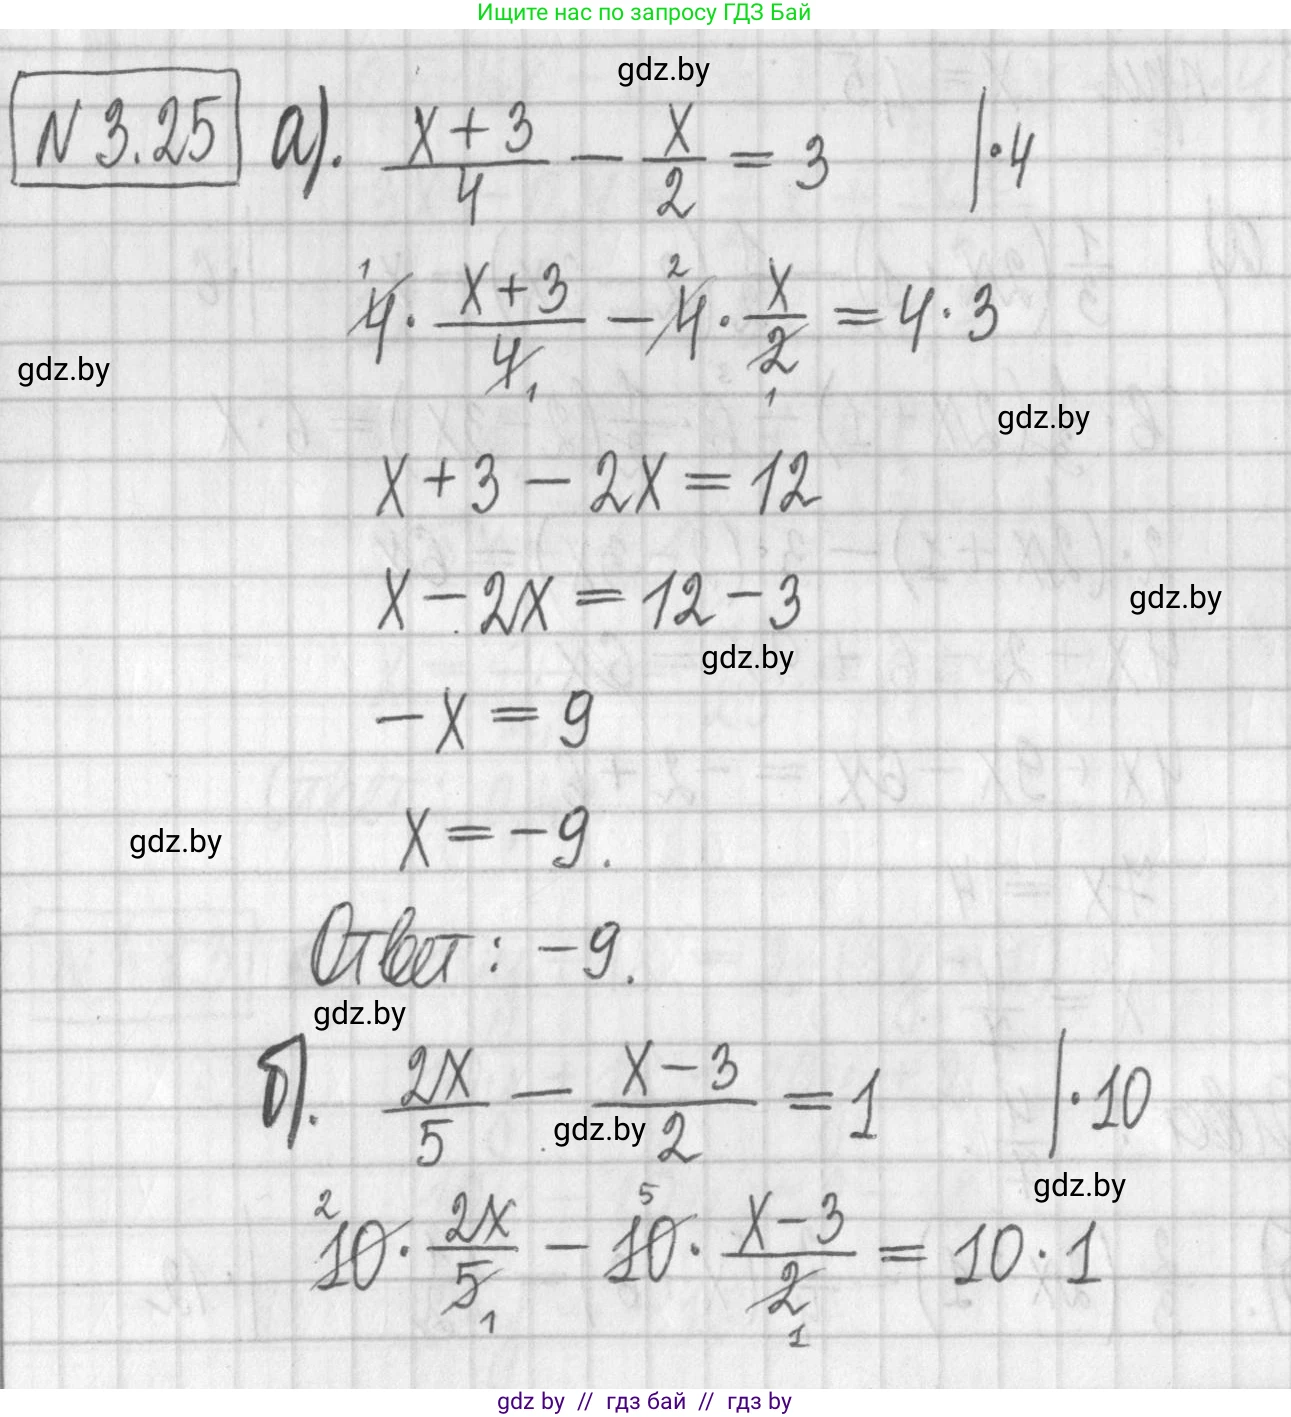 Ищите нас по запросу ГДЗ Бай
gdz.by
N 3.25 а). (x+3)/4 − x/2 = 3 |·4
4 · (x+3)/4 − 4 · x/2 = 4 · 3
1 2 1 1
gdz.by
gdz.by
x + 3 − 2x = 12
x − 2x = 12 − 3
gdz.by
gdz.by
−x = 9
x = −9.
gdz.by
Ответ: −9.
gdz.by
б). 2x/5 − (x−3)/2 = 1 |·10
gdz.by
gdz.by
10 · 2x/5 − 10 · (x−3)/2 = 10 · 1
2 5 1 1
gdz by // гдз бай // гдз by